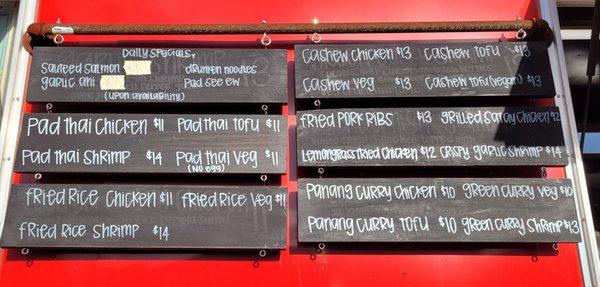 Daily Specials
Sauteed Salmon drunken noodles
garlic ahi Pad see ew
(upon availability)
Pad thai Chicken $11 Pad thai tofu $11
Pad thai Shrimp $14 Pad thai Veg $11
(No egg)
fried Rice Chicken $11 fried Rice Veg $11
fried Rice Shrimp $14
Cashew Chicken $13 Cashew Tofu $13
Cashew Veg $13 Cashew tofu (vegan) $13
fried Pork Ribs $13 grilled Satay Chicken $12
Lemongrass fried Chicken $12 Crispy garlic Shrimp $14
Panang Curry Chicken $10 green Curry Veg $10
Panang Curry Tofu $10 green Curry Shrimp $13